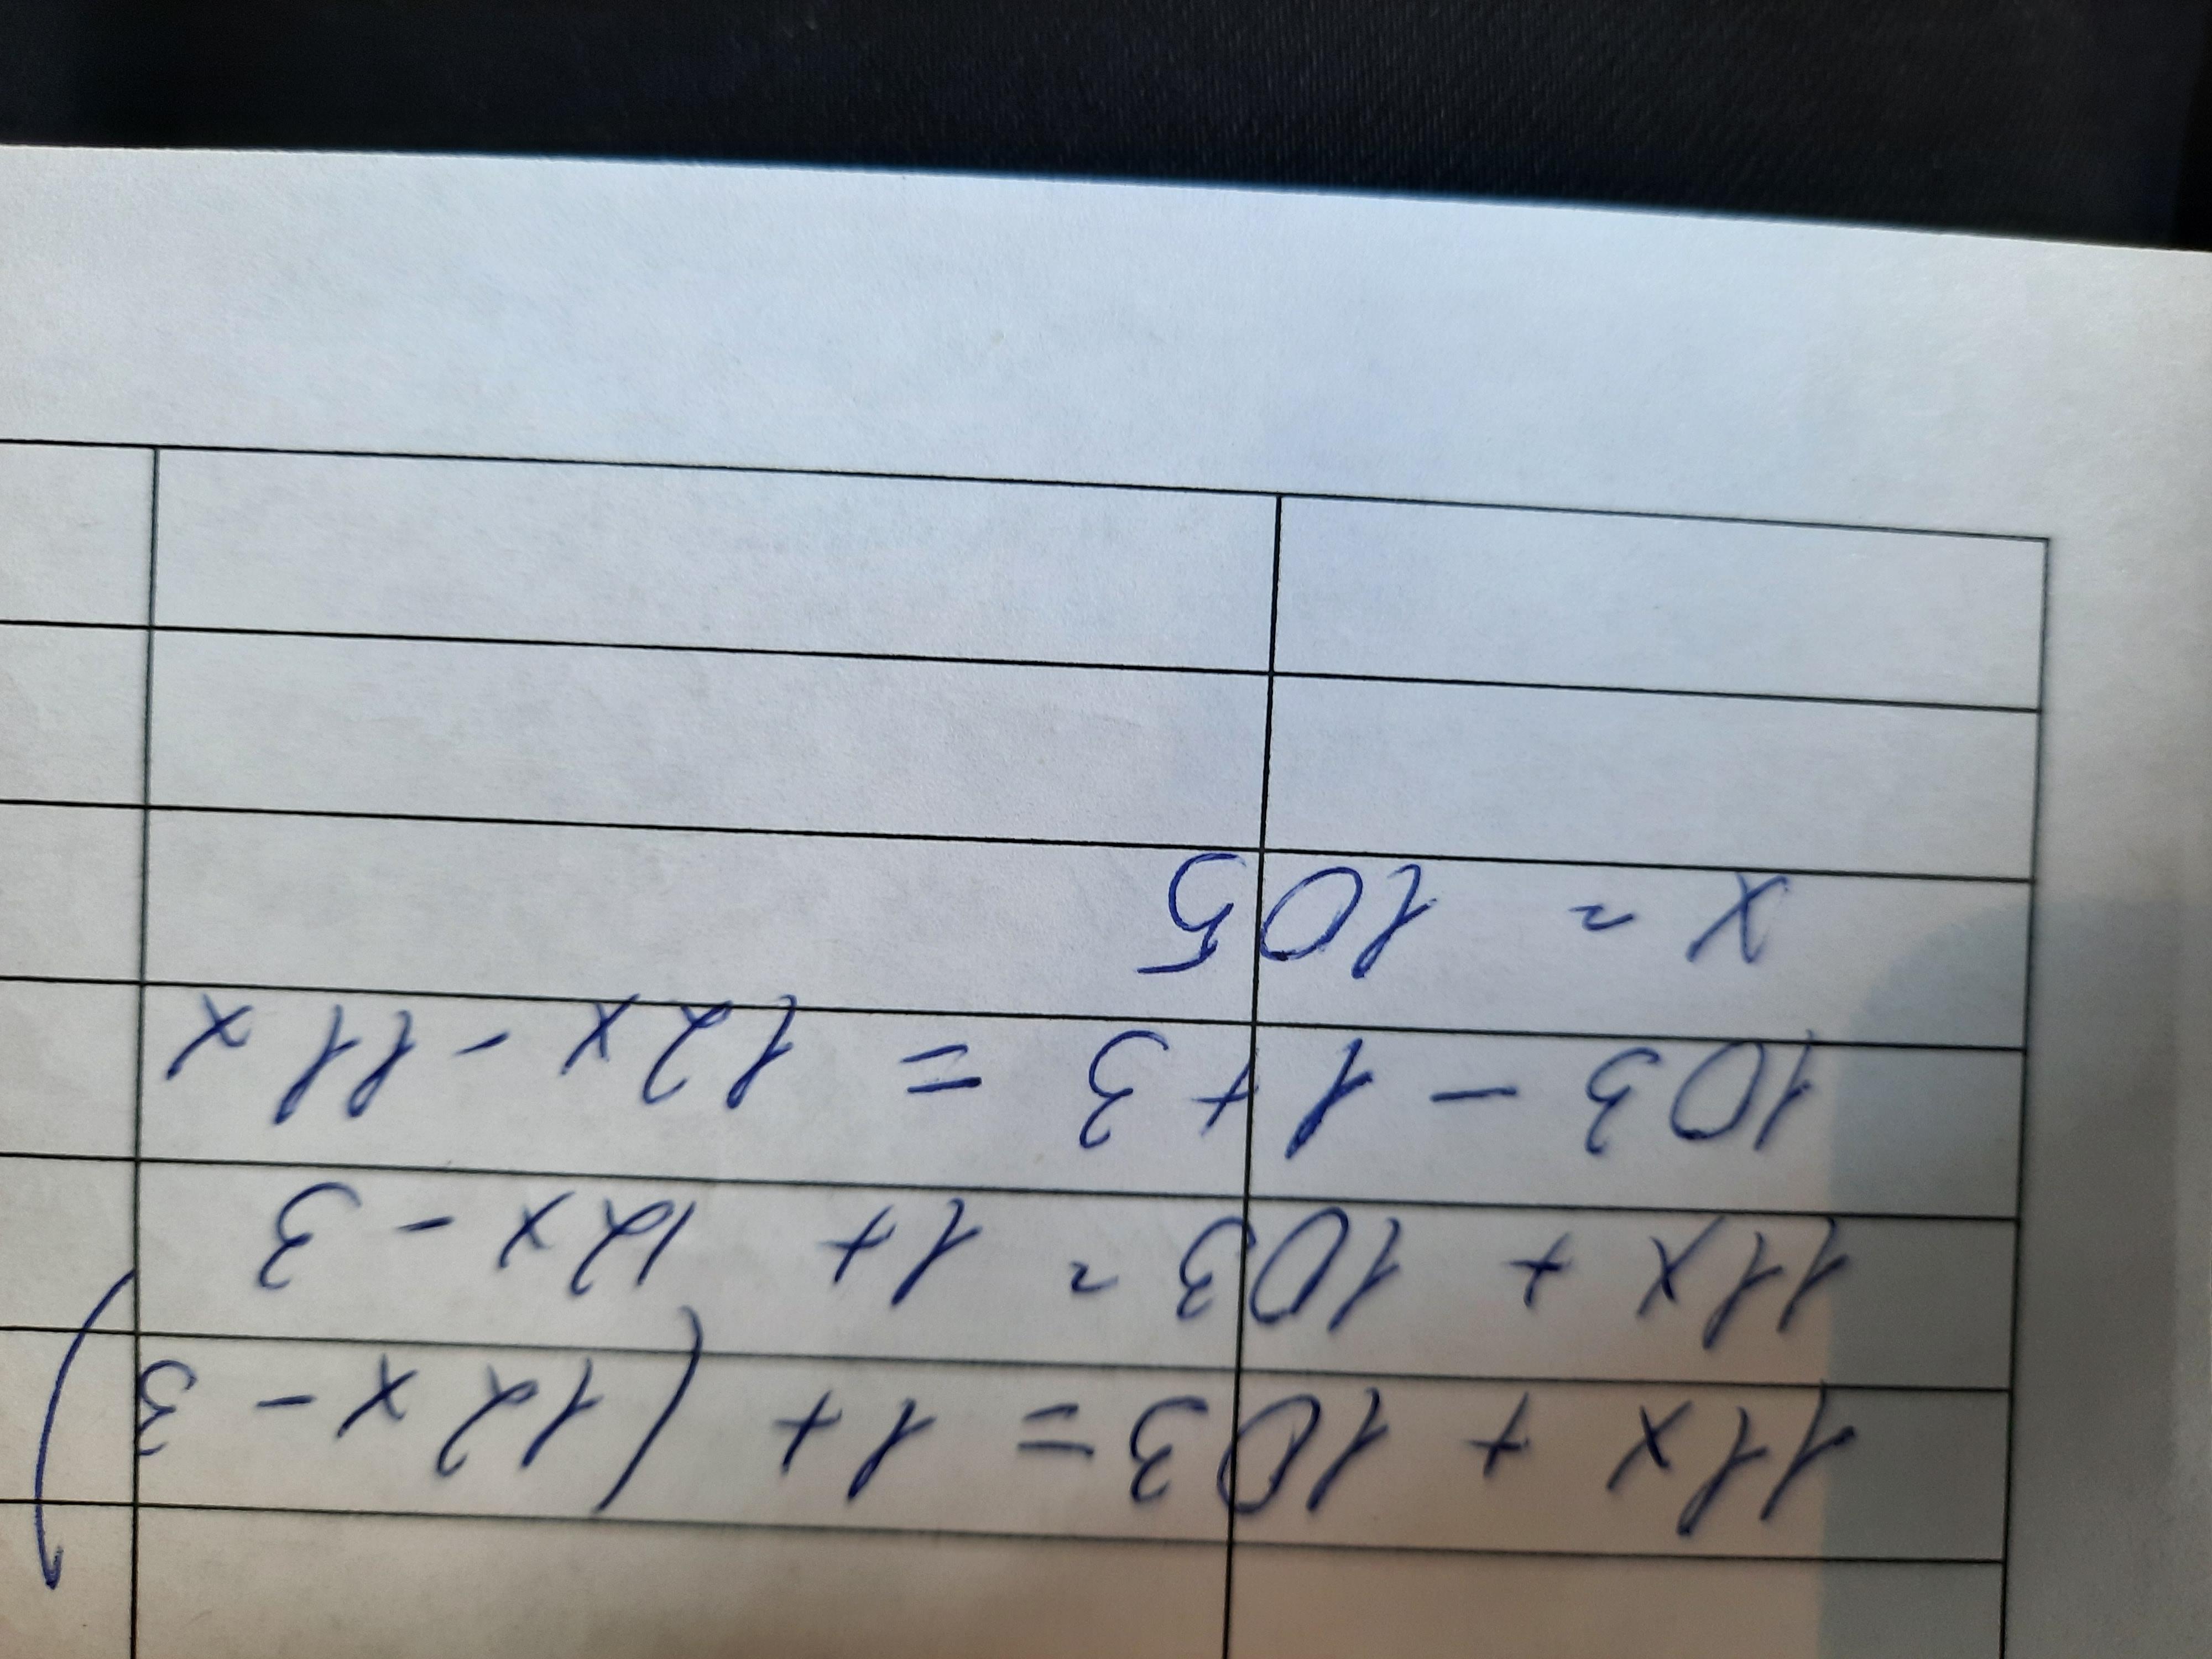 11x + 103 = 1 + (12x - 3)
11x + 103 = 1 + 12x - 3
103 - 1 + 3 = 12x - 11x
x = 105